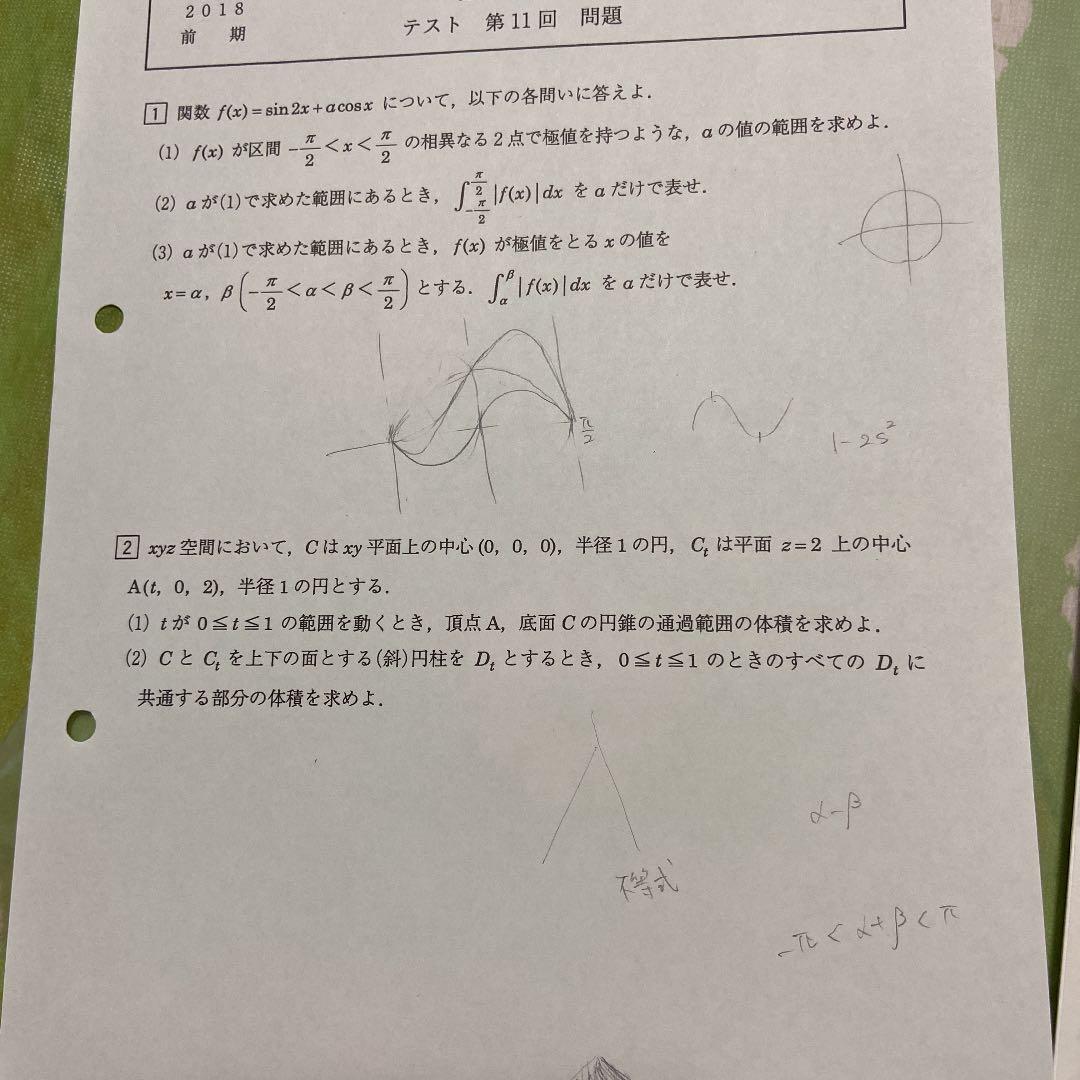 2018
前 期
テスト 第11回 問題
1 関数 f(x)=sin2x+acosx について，以下の各問いに答えよ．
(1) f(x) が区間 -π/2<x<π/2 の相異なる2点で極値を持つような，aの値の範囲を求めよ．
(2) aが(1)で求めた範囲にあるとき，∫_{-π/2}^{π/2}|f(x)|dx をaだけで表せ．
(3) aが(1)で求めた範囲にあるとき，f(x) が極値をとるxの値を
x=α，β(-π/2<α<β<π/2)とする．∫_α^β|f(x)|dx をaだけで表せ．
π/2
1-2s²
2 xyz空間において，Cはxy平面上の中心(0，0，0)，半径1の円，C_tは平面 z=2 上の中心
A(t，0，2)，半径1の円とする．
(1) tが0≦t≦1の範囲を動くとき，頂点A，底面Cの円錐の通過範囲の体積を求めよ．
(2) CとC_tを上下の面とする(斜)円柱をD_tとするとき，0≦t≦1のときのすべてのD_tに
共通する部分の体積を求めよ．
α-β
不等式
-π<α+β<π